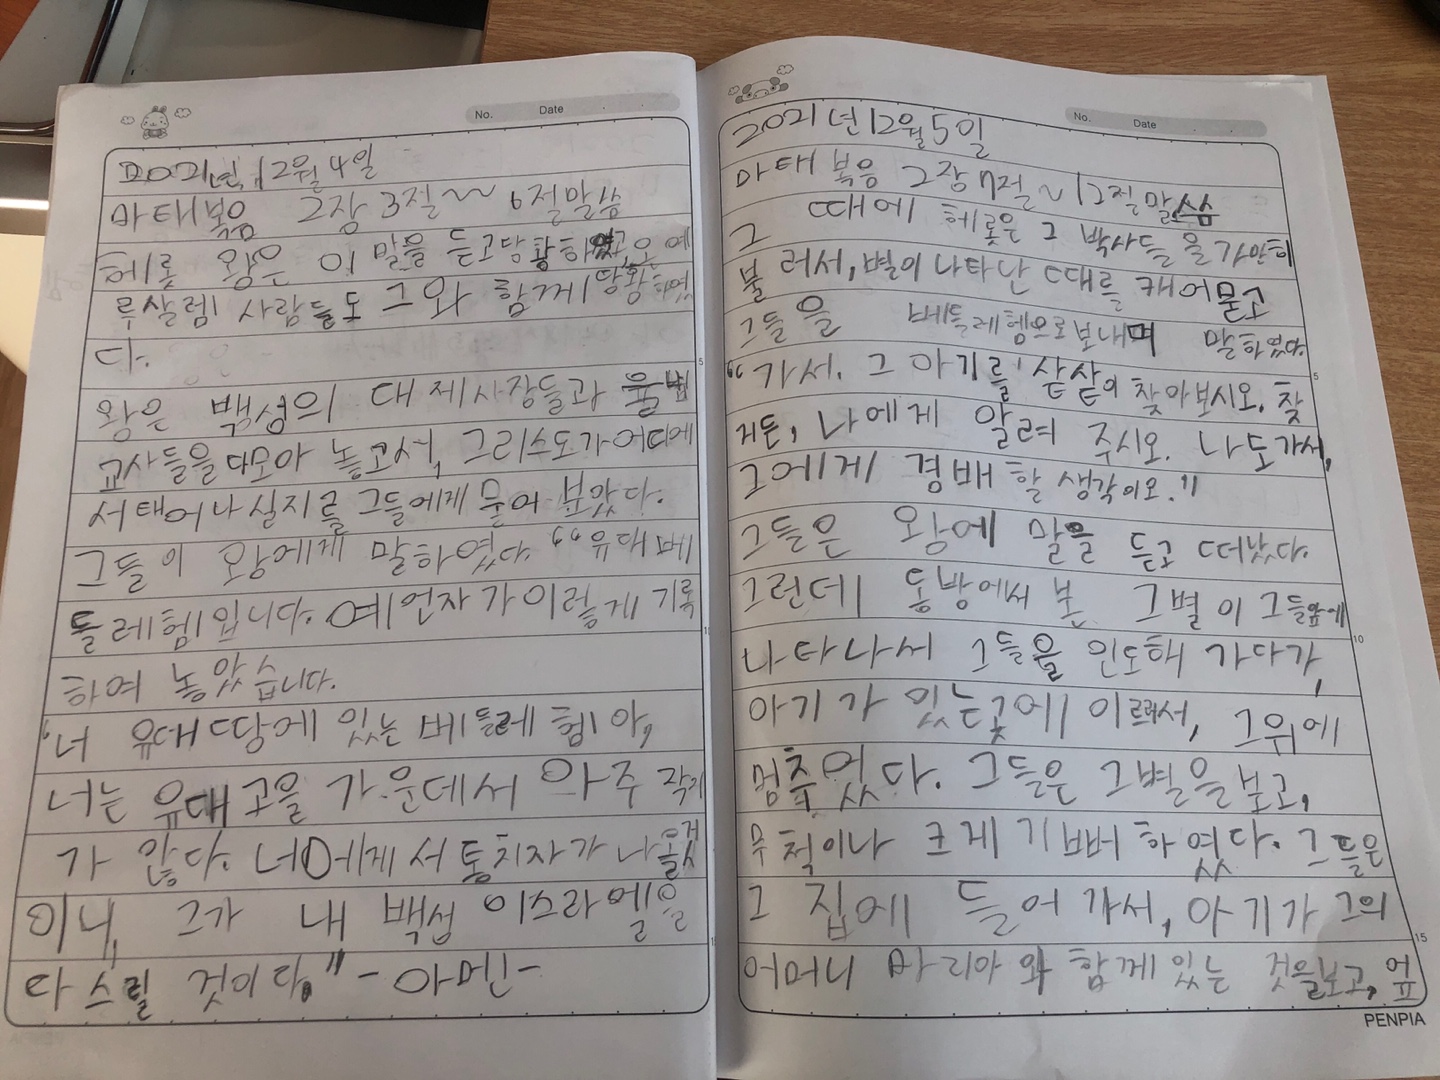 No. Date
2021년 12월 4일
마태복음 2장 3절~ 6절말씀
헤롯 왕은 이 말을 듣고당황하였고오예
루살렘 사람들도 그와 함께 당황하였
다.
왕은 백성의 대제사장들과 율법
교사들을다모아 놓고서, 그리스도가어디에
서태어나실지를 그들에게 물어 보았다.
그들이 왕에게 말하였다 "유대베
들레헴입니다. 예언자가이렇게 기록
하여 놓았습니다.
'너 유대땅에 있는 베들레헴아,
너는 유대고을 가운데서 아주 작지
가 않다. 너에게서 통치자가 나올것
이니, 그가 내 백성 이스라엘을
다스릴 것이다." -아멘-
No. Date
2021년12월5일
마태복음 2장7절~12절말씀
그 때에 헤롯은 그 박사들을가만히
불러서,별이나타난 때를 캐어묻고
그들을 베들레헴으로보내며 말하였다.
"가서. 그 아기를 샅샅이 찾아보시오. 찾
거든, 나에게 알려 주시오. 나도가서,
그에게 경배할 생각이오."
그들은 왕에 말을 듣고 떠났다.
그런데 동방에서 본 그별이 그들앞에
나타나서 그들을 인도해 가다가,
아기가 있는곳에 이르러서, 그위에
멈추었다. 그들은 그별을보고,
무척이나 크게 기뻐하였다. 그들은
그 집에 들어가서, 아기가 그의
어머니 마리아와 함께있는 것을보고, 엎
PENPIA
5
10
15
5
10
15